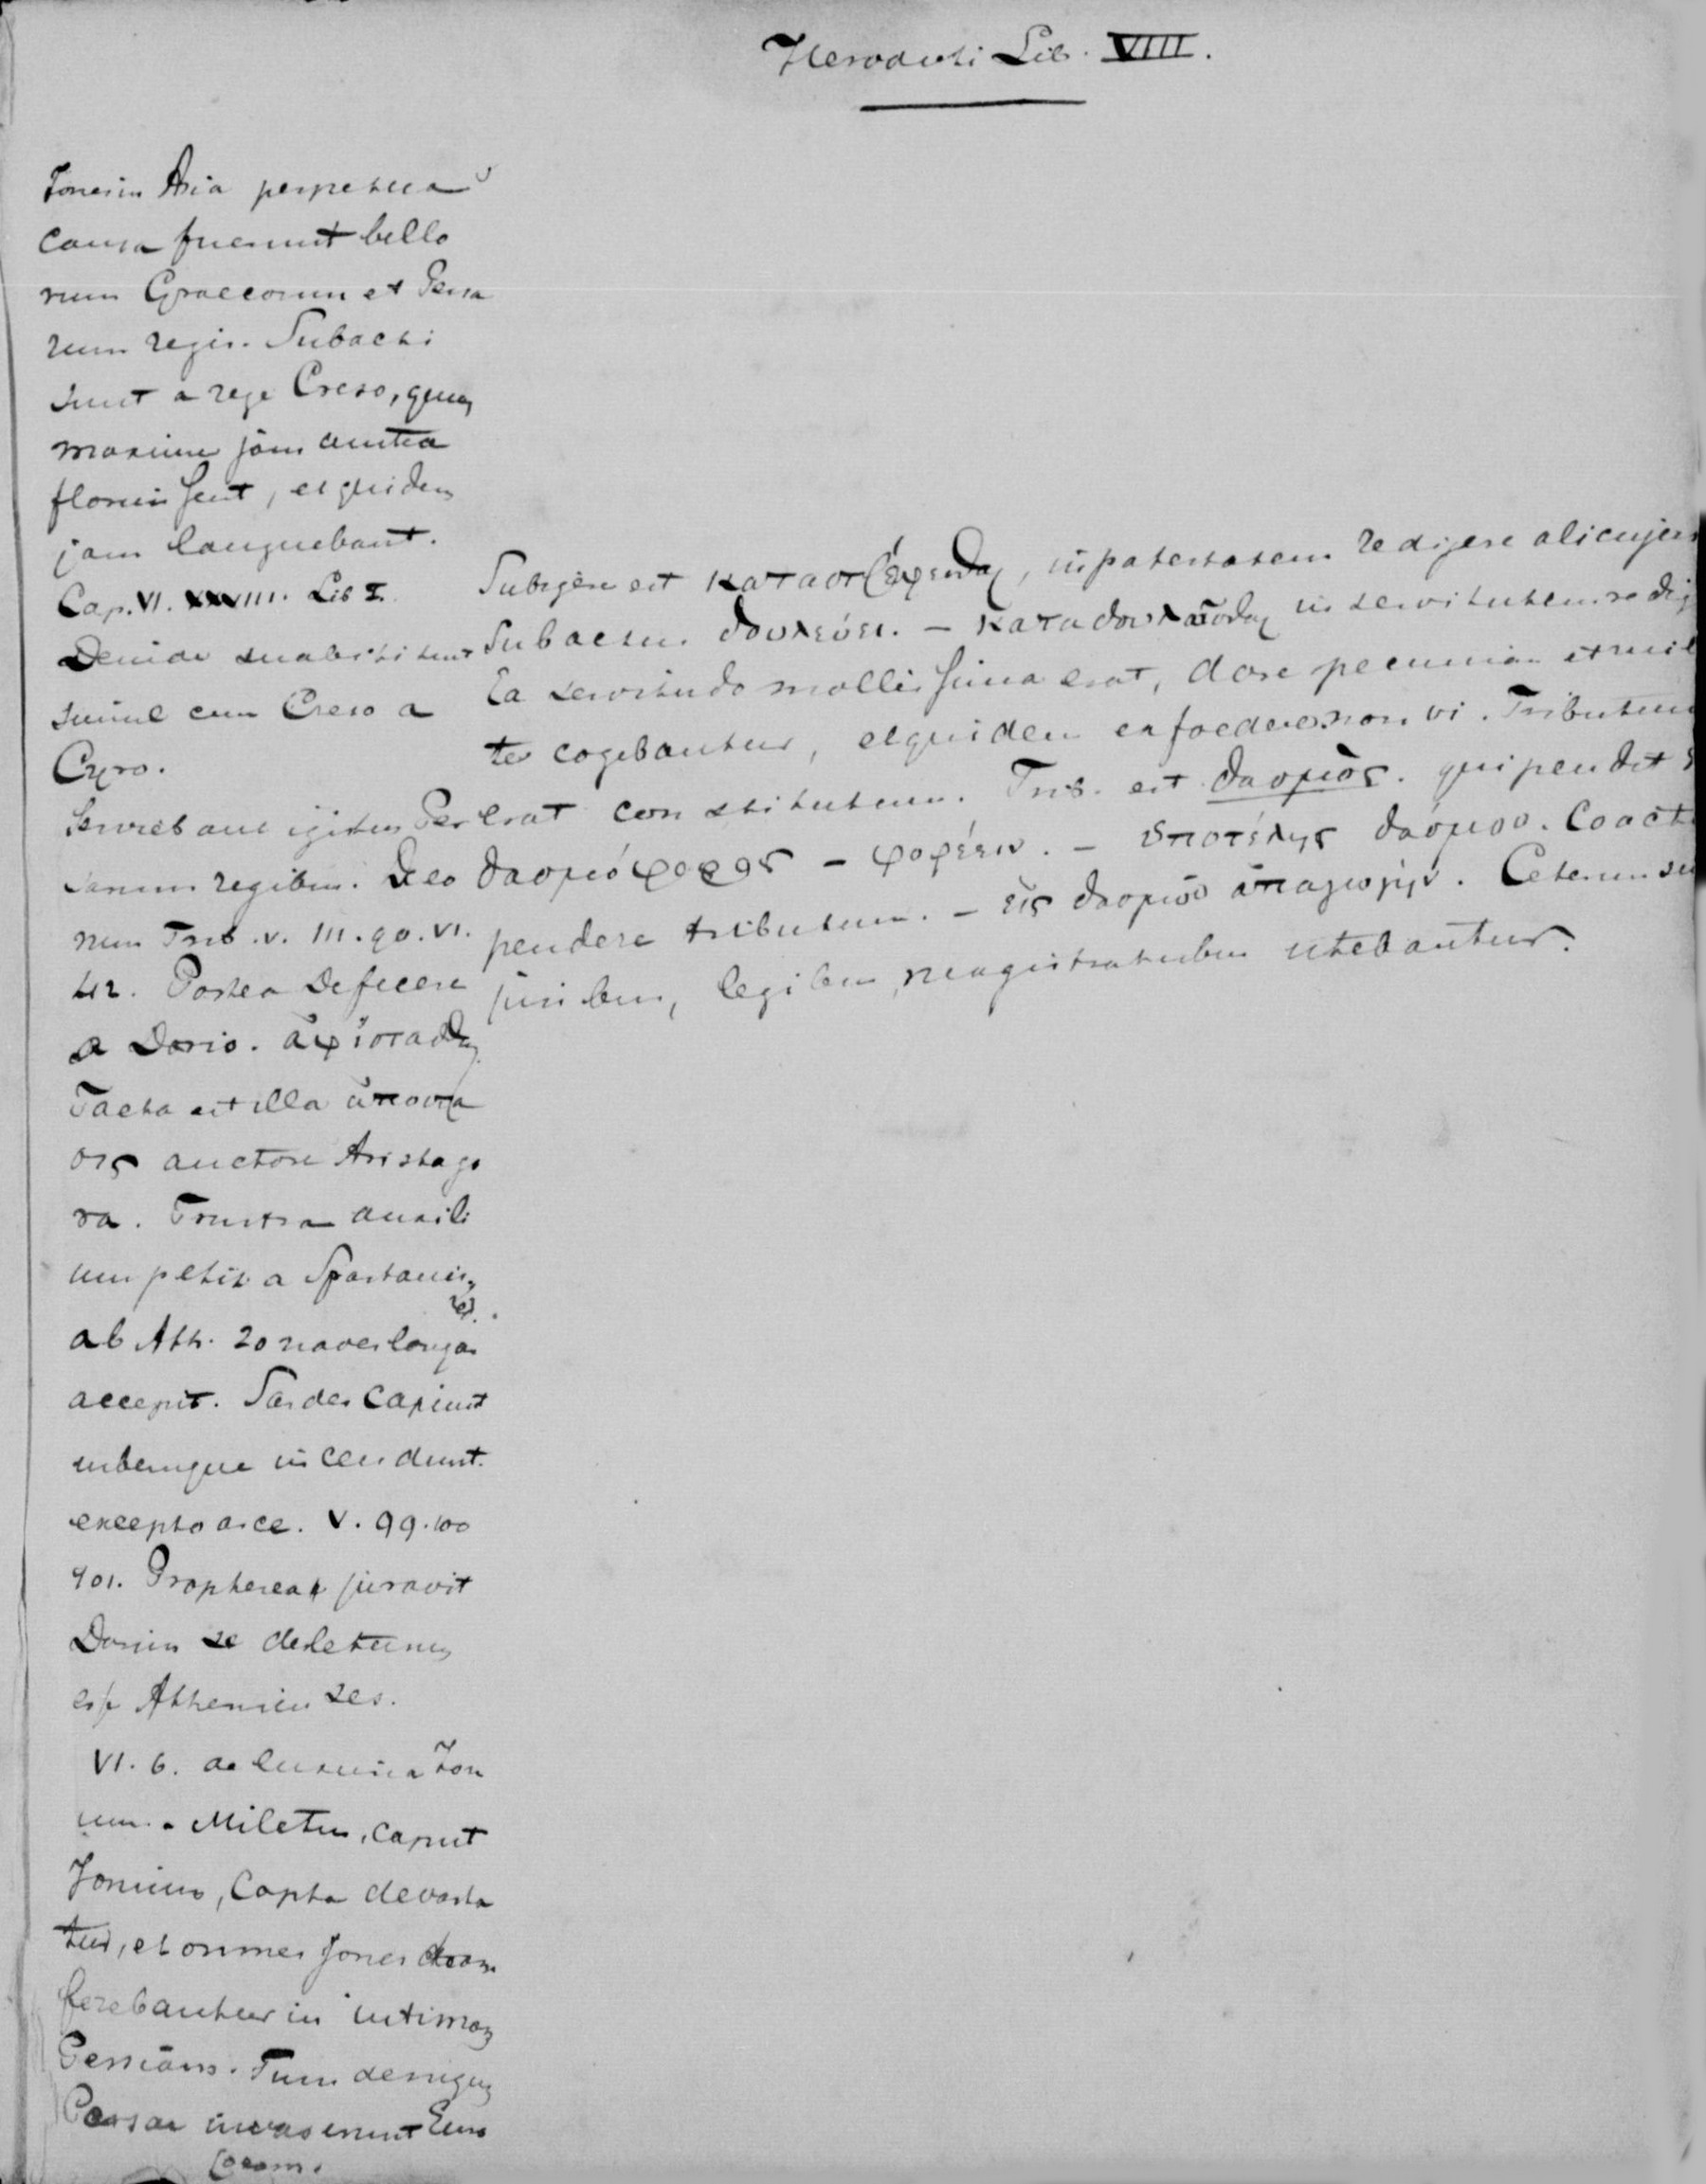 Herodoti Lib. VIII.
Iones in Asia perpetua
causa fuerunt bello
rum Graecorum et Persa
rum regis. Subacti
sunt a rege Creso, quum
maxime jam antea
floruissent, et quidem
jam languebant.
Cap. VI. XXVIII. Lib I.
Deinde subacti sunt
simul cum Creso a
Cyro.
Serviebant igitur Per
sarum regibus.
rum Trib. v. III. 90. VI.
42. Postea defecere
a Dario. ἀφίστασθαι
Facta est illa ἀπόστα
σις auctore Aristago
ra. Frustra auxili
um petit a Spartanis,
ab Ath. 20 naves longas
accepit. Sardes capiunt
urbemque incendunt
excepto arce. V. 99. 100
101. Propterea juravit
Darius se deleturum
esse Athenienses.
VI. 6. Ion
um. Miletus, caput
Ionum, capta devasta
tur, et omnes Iones trans
ferebantur in intimam
Persiam. Tum denique
Persae invaserunt Euro
pam.
Subigere est καταστρέφεσθαι, in potestatem redigere alicujus
Subactus δουλεύει. – καταδουλοῦσθαι in servitutem redig
Ea servitudo mollissima erat, dare pecuniam et mili
tes cogebantur, et quidem ex foedere non vi. Tributum
erat constitutum. Trib. est δασμὸς. qui pendet
δασμόφορος – φορέειν. – ὑποτέλης δασμοῦ. Coacti
pendere tributum. – εἰς δασμοῦ ἀπαγωγήν. Ceterum su
juribus, legibus, magistratubus utebantur.